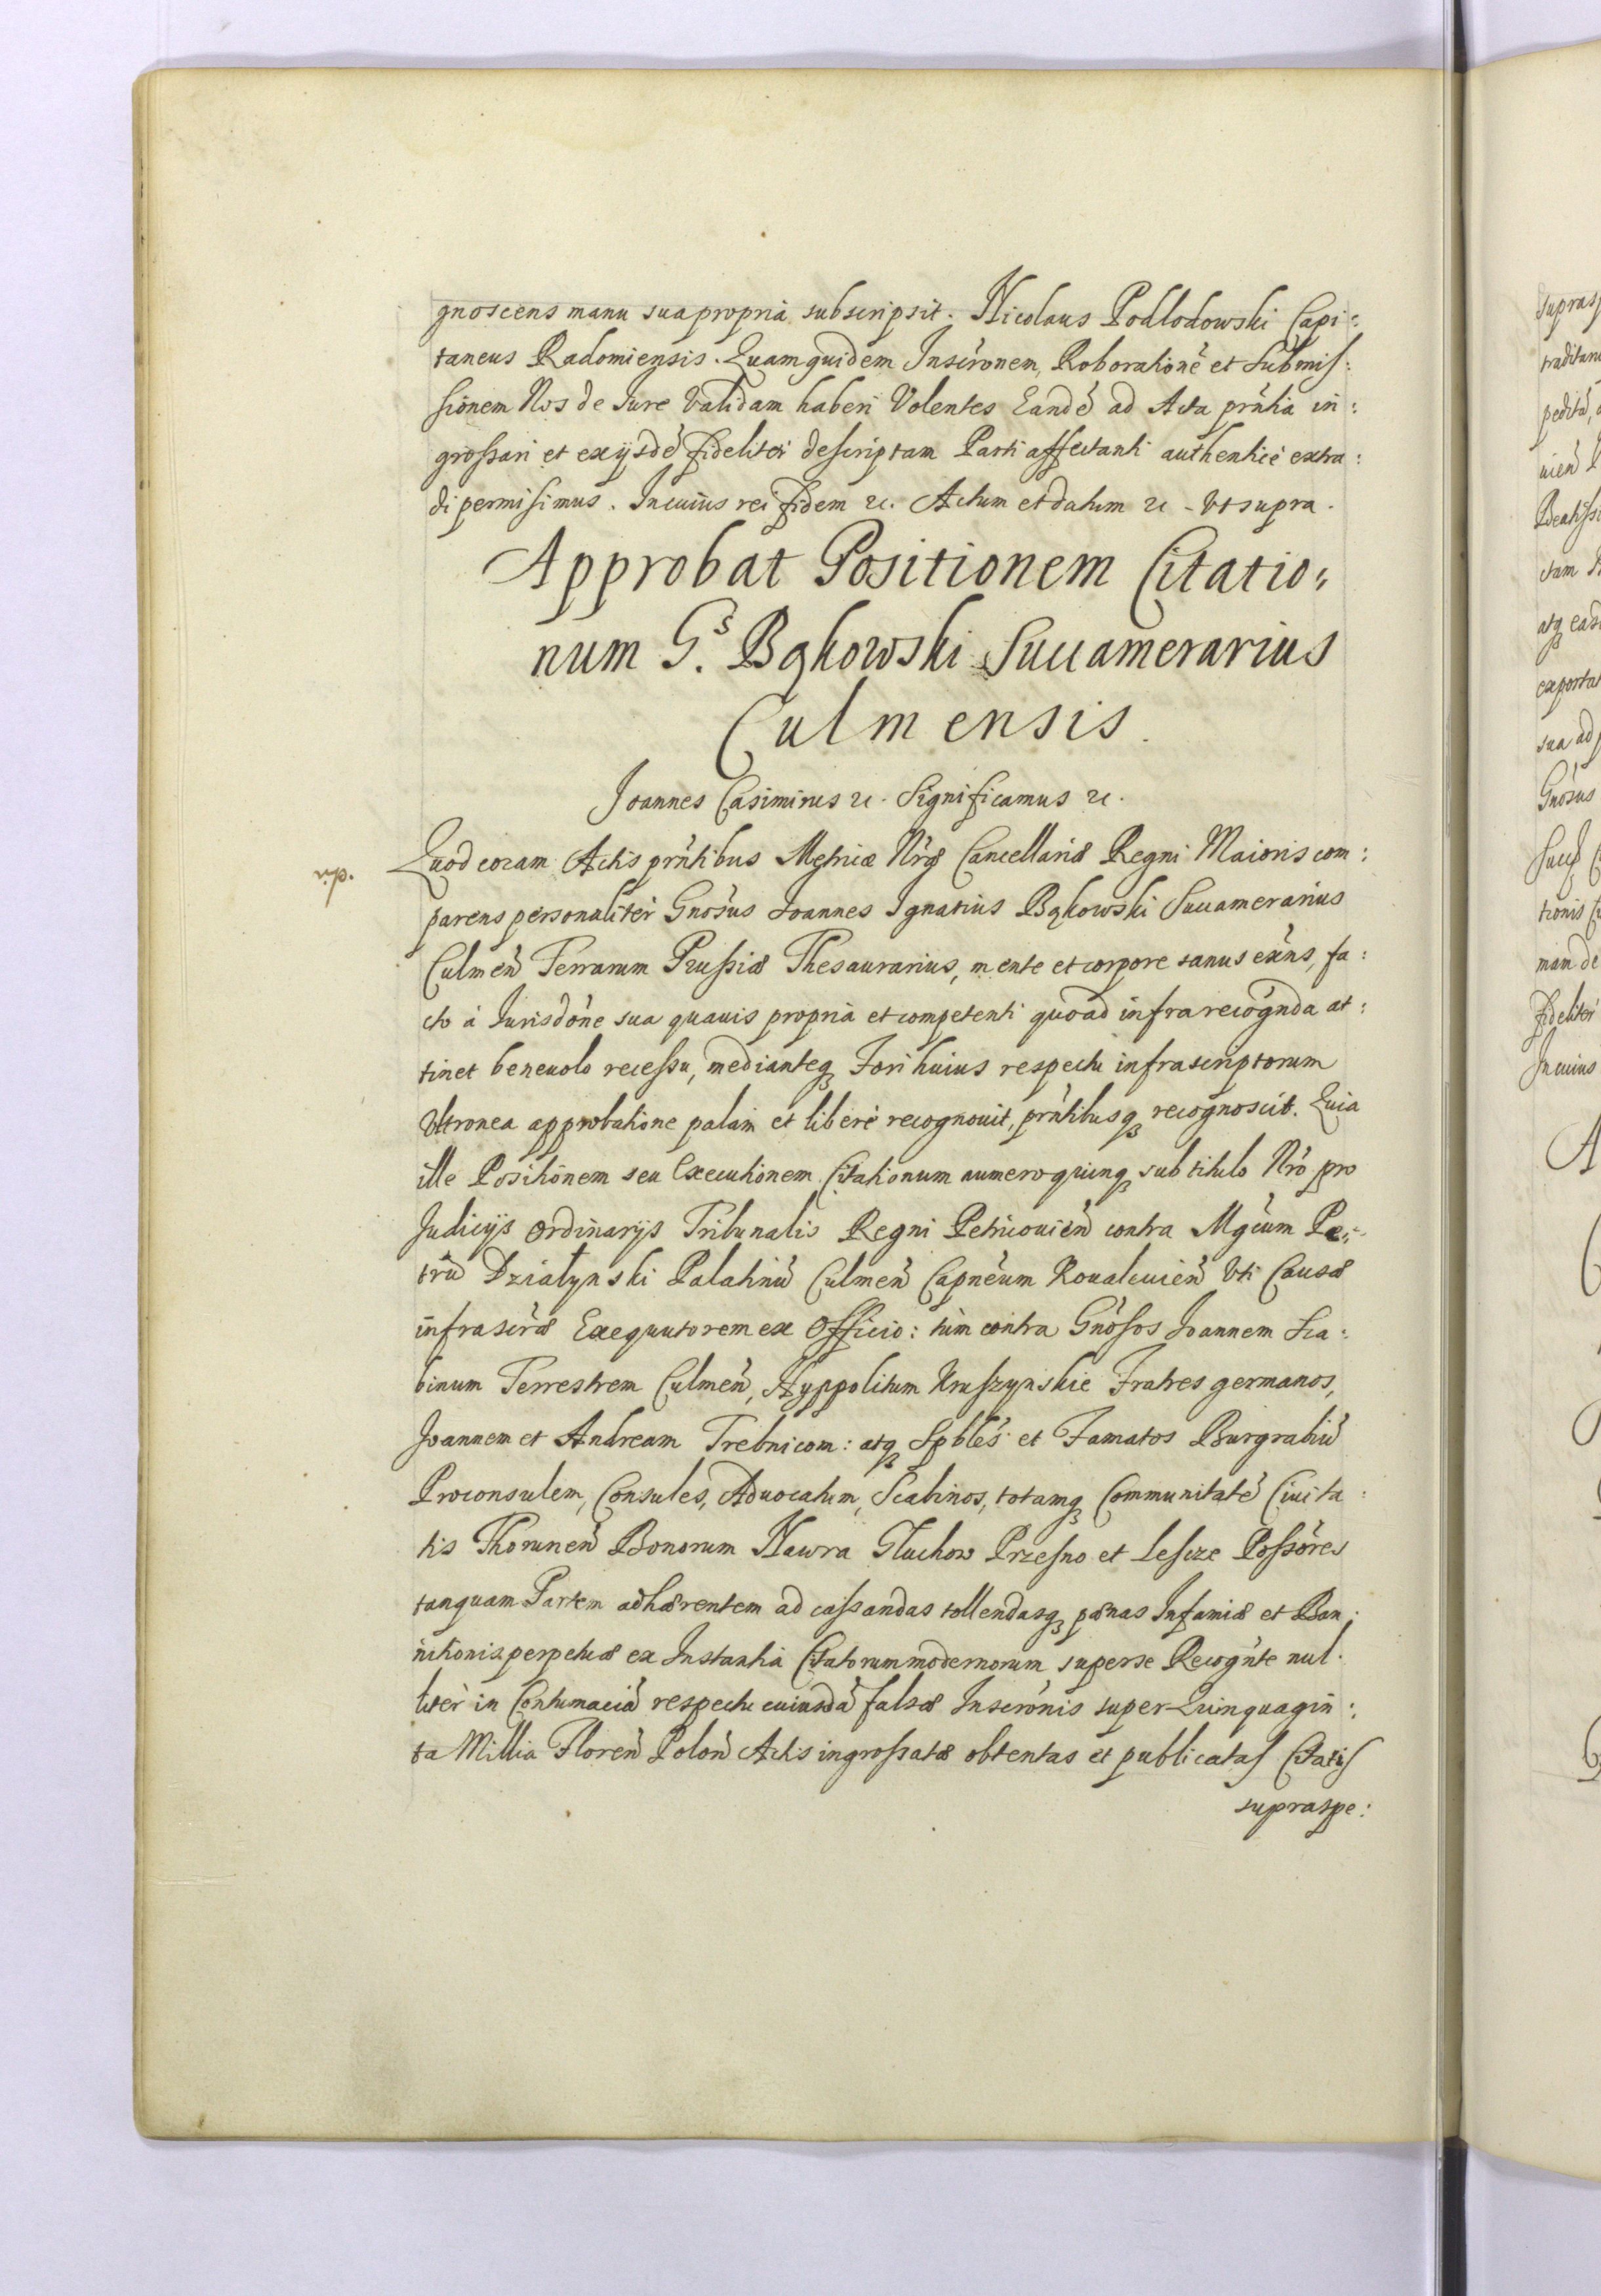 gnoscens manu sua propria subscripsit. Nicolaus Podlodowski Capi:
taneus Radomiensis. Quam quidem Inscrōnem, Roborationē et Submis:
sionem Nos de Iure Validam haberi Volentes Eandē ad Acta prńtia in:
grossari et ex ijsdē fideliter descriptam Parti affectanti authenticè extra:
di permisimus. In cuius rei fidem &c. Actum et datum &c - Vt supra.
Approbat Positionem Citatio:
num G.s Bąkowski Succamerarius
Culmensis.
Joannes Casimirus &c. Significamus &c.
Quod coram Actis prńtibus Metricæ Nræ Cancellariæ Regni Maioris com:
parens personaliter Gnosus Joannes Ignatius Bąkowski Succamerarius
Culmen̄ Terrarum Prussiæ Thesaurarius, mente et corpore sanus exn̄s, fa:
cto à Jurisdōne sua quauis propria et competenti quoad infra recognda at:
tinet beneuolo recessu, medianteq Fori huius respectu infrascriptorum
Vltronea approbatione palam et liberè recognouit, prńtibusq recognoscit. Quia
ille Positionem seu Executionem Citationum numero quinq sub titulo Nrō pro
Judicijs Ordinarijs Tribunalis Regni Petricouien̄ contra Mgcum Pe:
trū Działynski Palatinū Culmen̄ Capneum Koualeuien̄ Vti Causæ
infrascræ Exequutorem ex Officio: tùm contra Gnosos Joannem Sca:
binum Terrestrem Culmen̄, Hyppolitum Kruszynskie Fratres germanos,
Joannem et Andream Trebnicom: atq Spbles et Famatos Burgrabiū
Proconsulem, Consules, Aduocatum, Scabinos, totamq Communitatē Ciuita:
tis Thorunen̄ Bonorum Nawra Gluchow Przesno et Lescze Possōres
tanquam Partem adhærentem ad cassandas tollendasq pænas Infamiæ et Ban:
nitionis perpetuæ ex Instantia Citatorum modernorum super se Recognte nul:
liter in Contumaciā respectu cuiusdā falsæ Inscrōnis super Quinquagin:
ta Millia Floren̄ Polon̄ Actis ingrossatæ obtentas et publicatas Citatis
supraspe: